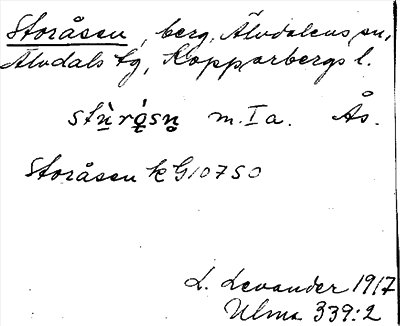 Storåsen, berg, Älvdalens sn,
Älvdals tg, Kopparbergs l.
m. I a. Ås.
Storåsen k G10750
L. Levander 1917
Ulma 339:2